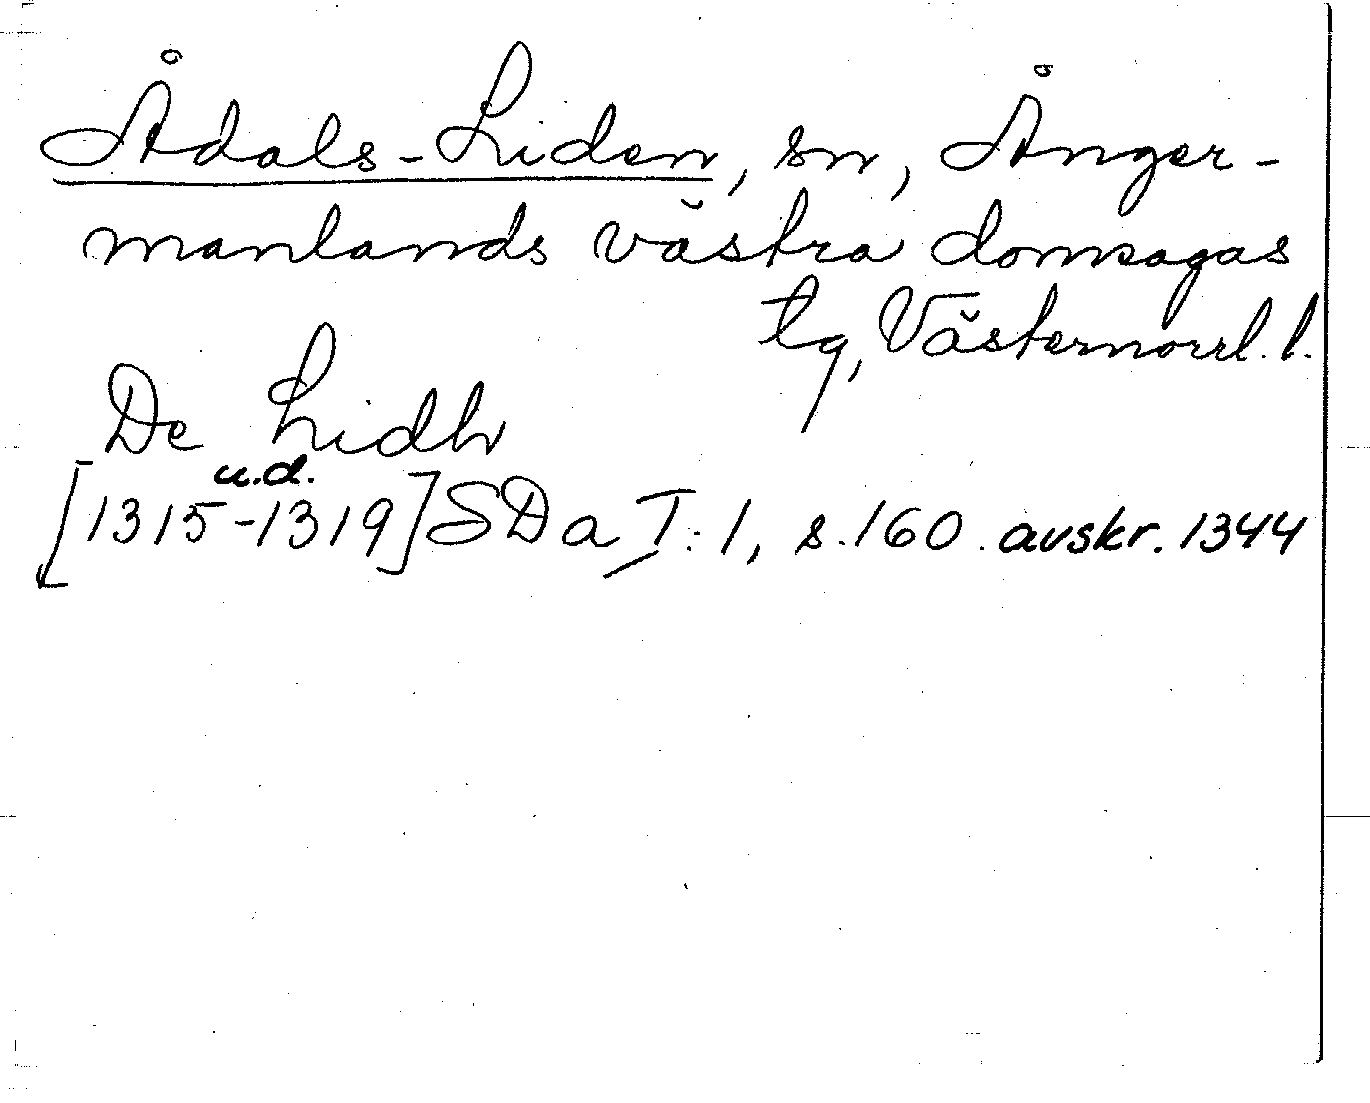 Ådals-Liden, sn, Ånger-
manlands västra domsagas
tg, Västernorrl. l.
De Lidh
u.d.
[1315-1319] SDa I:1, s.160. avskr. 1344